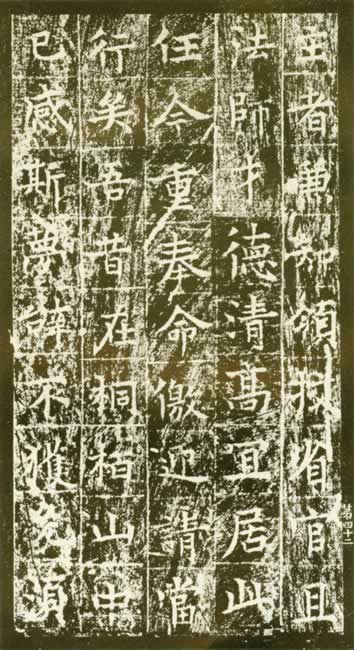 主者兼知領省官且
法師才德清高宜居此
任今重奉命儌迎請當
行矣吾昔在桐柏山中
已感斯夢辭不獲免須
第四十二